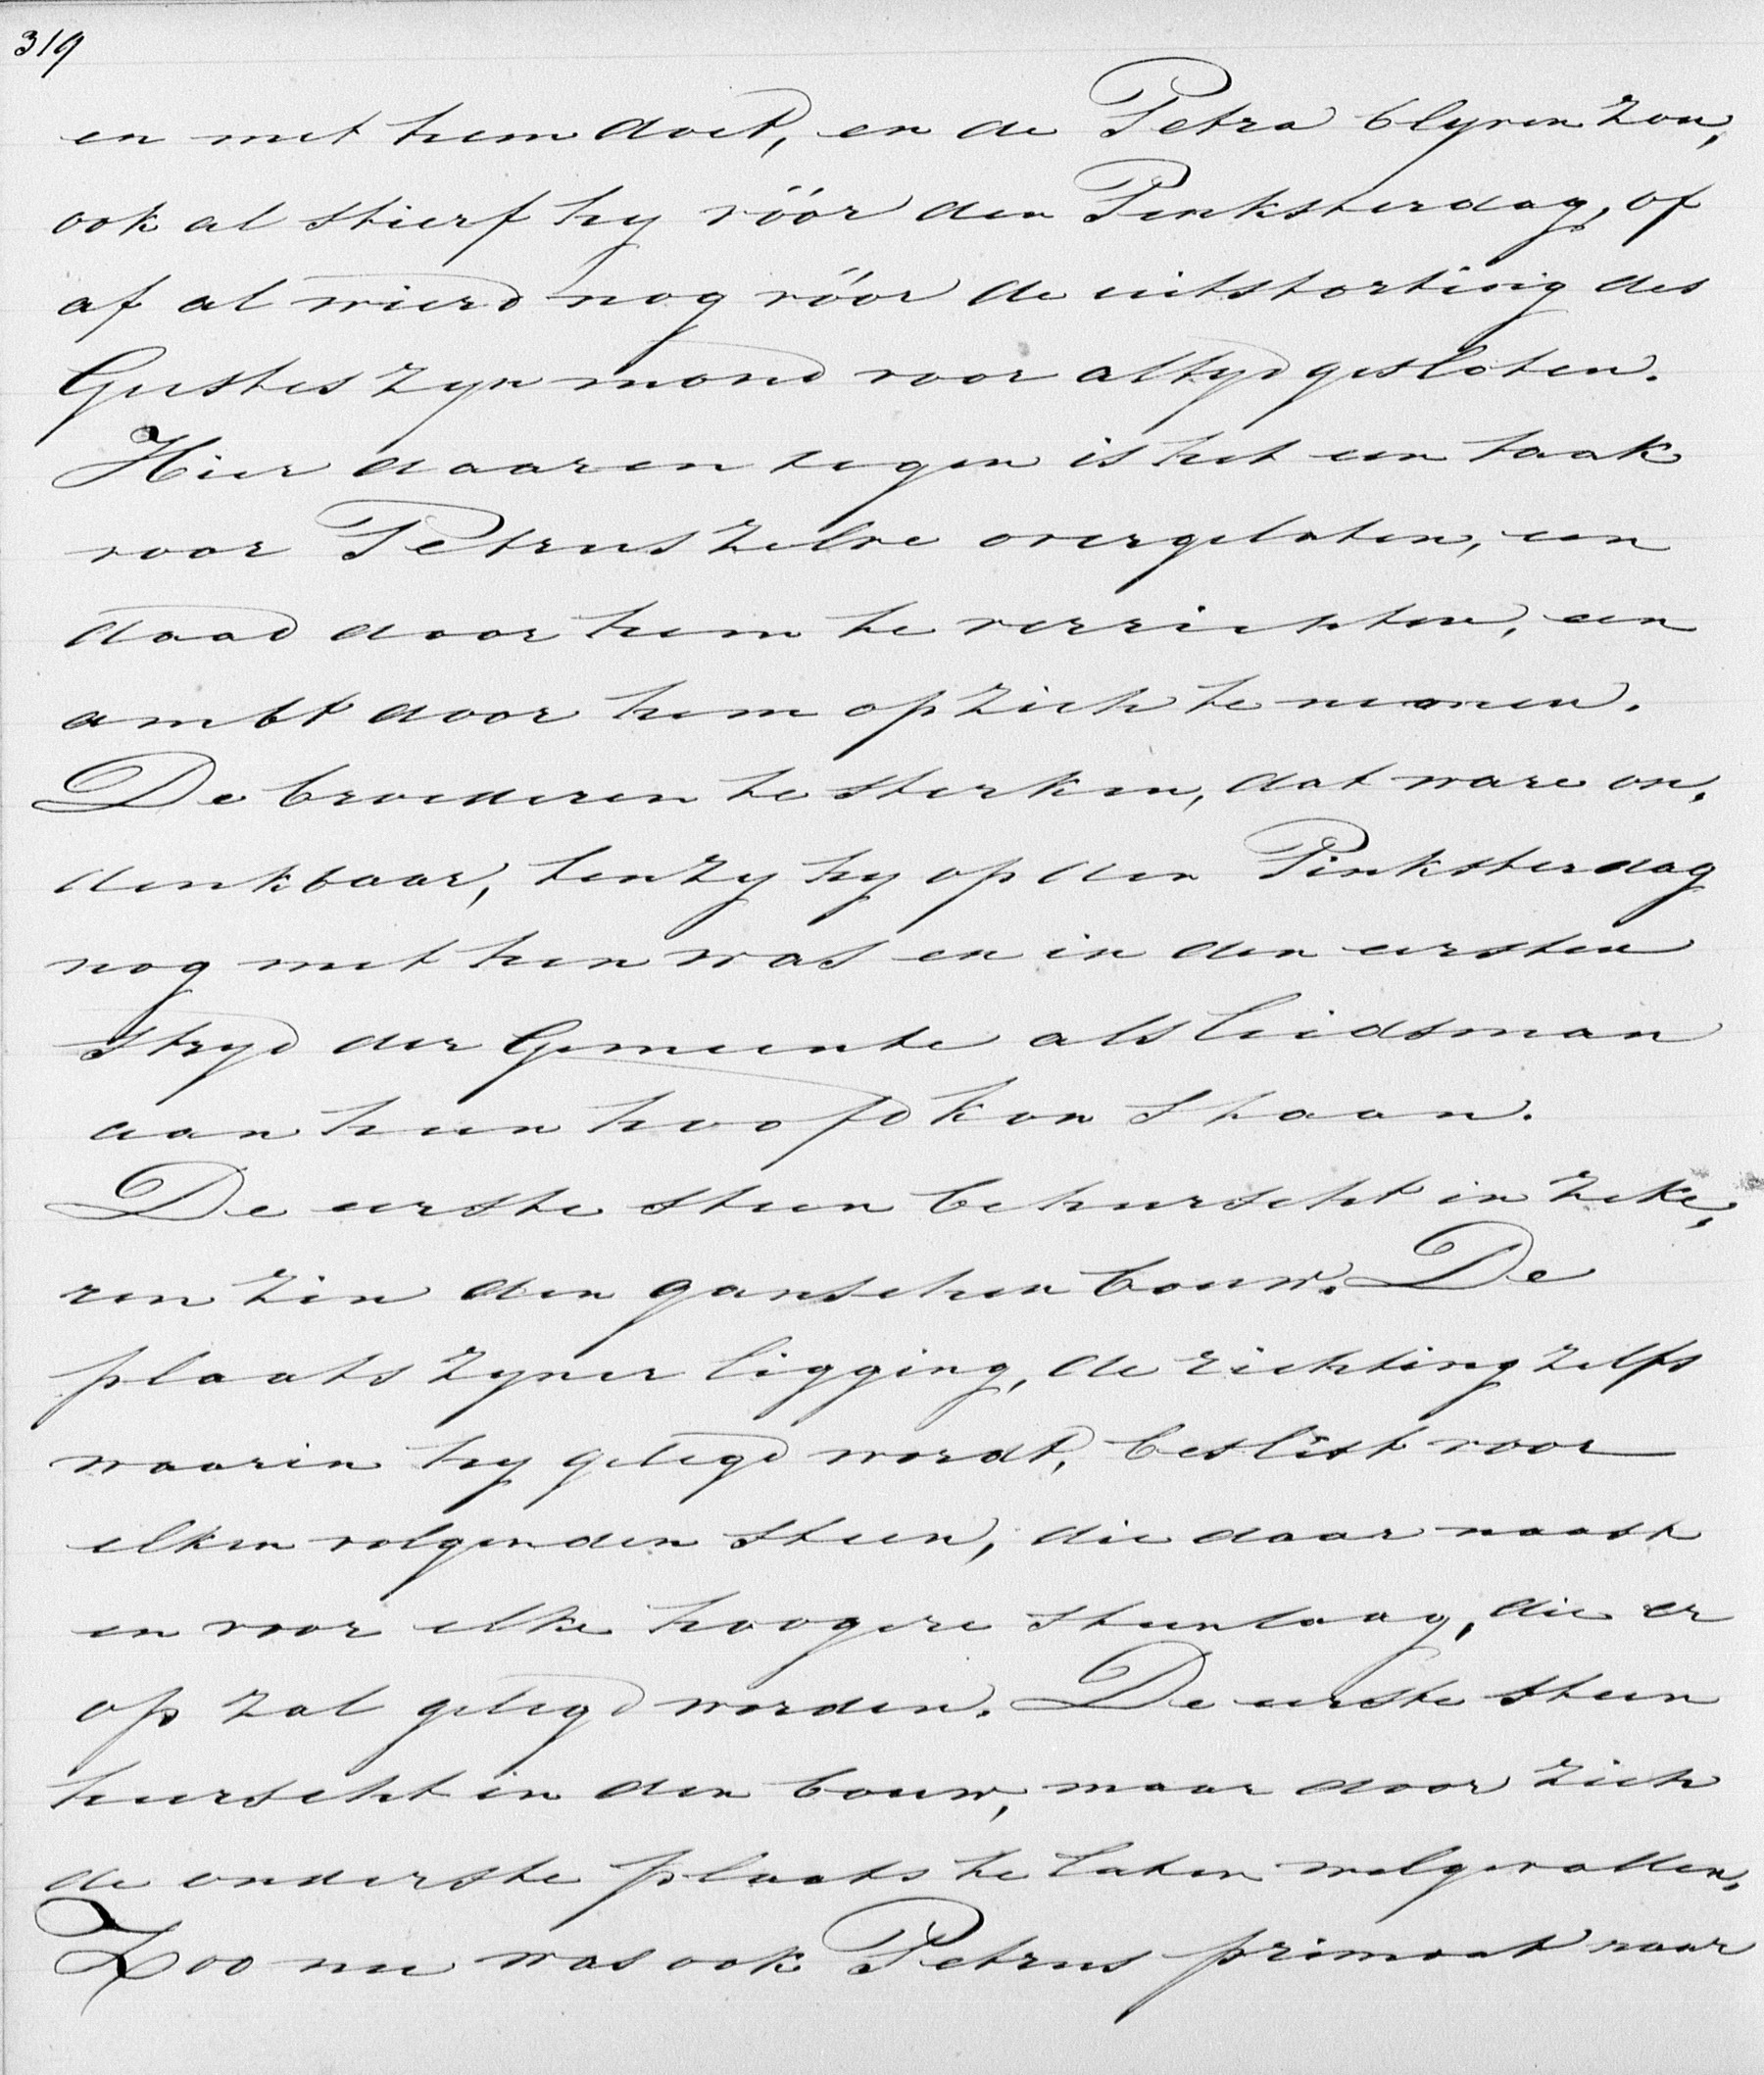 319
en met hem doet, en de Petra blyven zou,
ook al stierf hy vóór den Pinksterdag, of
af al wierd nog vóór de uitstorting des
Geestes zyn mond voor altyd gesloten.
Hier daaren tegen is het een taak
voor Petrus zelve overgelaten, een
daad door hem te verrichten, een
ambt door hem op zich te nemen.
De broederen te sterken, dat ware on,
denkbaar, tenzy hy op den Pinksterdag
nog met hen was en in den eersten
stryd der Gemeente als leidsman
aan hun hoofd kon staan.
De eerste steen beheerscht in zeke,
ren zin den ganschen bouw. De
plaats zyner ligging, de richting zelfs
waarin hy gelegd wordt, beslist voor
elken volgenden steen, die daar naast
en voor elke hoogere steenlaag, die er
op zal gelegd worden. De eerste steen
heerscht in den bouw, maar door zich
de onderste plaats te laten welgevallen.
Zoo nu was ook Petrus primaat naar